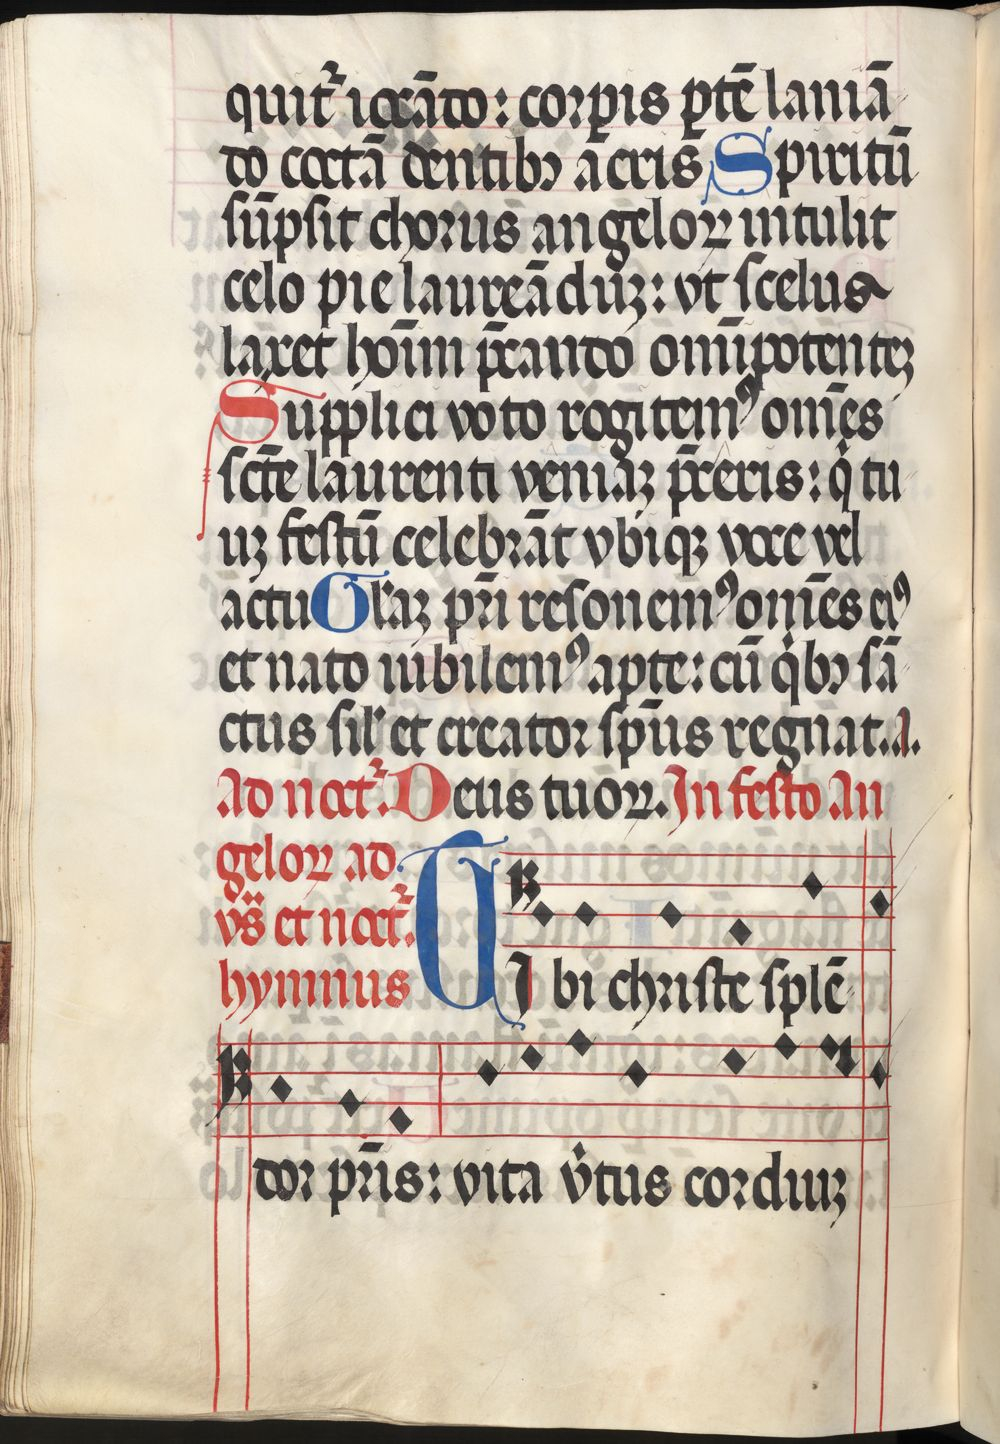 quit᷑ iccādo : corpis ptē laniā
do coctā dentibꝫ ācris Spiritū
sūpsit chorus angeloꝝ intulit
celo pie laureādūꝫ : vt scelus
laxet hoīm p̄cando omīpotenteꝫ
Supplici voto rogitemꝰ omēs
scē laurenti veniaꝫ p̄ceris : q̇ tu
uꝫ festū celebrāt vbiqꝫ voce vel
actu Gl'aꝫ pr̄i resonemꝰ omēs eiꝰ
et nato iubilemꝰ apte : cū q̇bꝫ sā
ctus sil' et creator sp̄us regnat. A.
Ad noct᷑. Decus tuoꝝ. In festo An
geloꝝ ad
vs̄ et noct᷑.
hymnus
TIbi christe splē
dor pr̄is : vita v̇tus cordiuꝫ